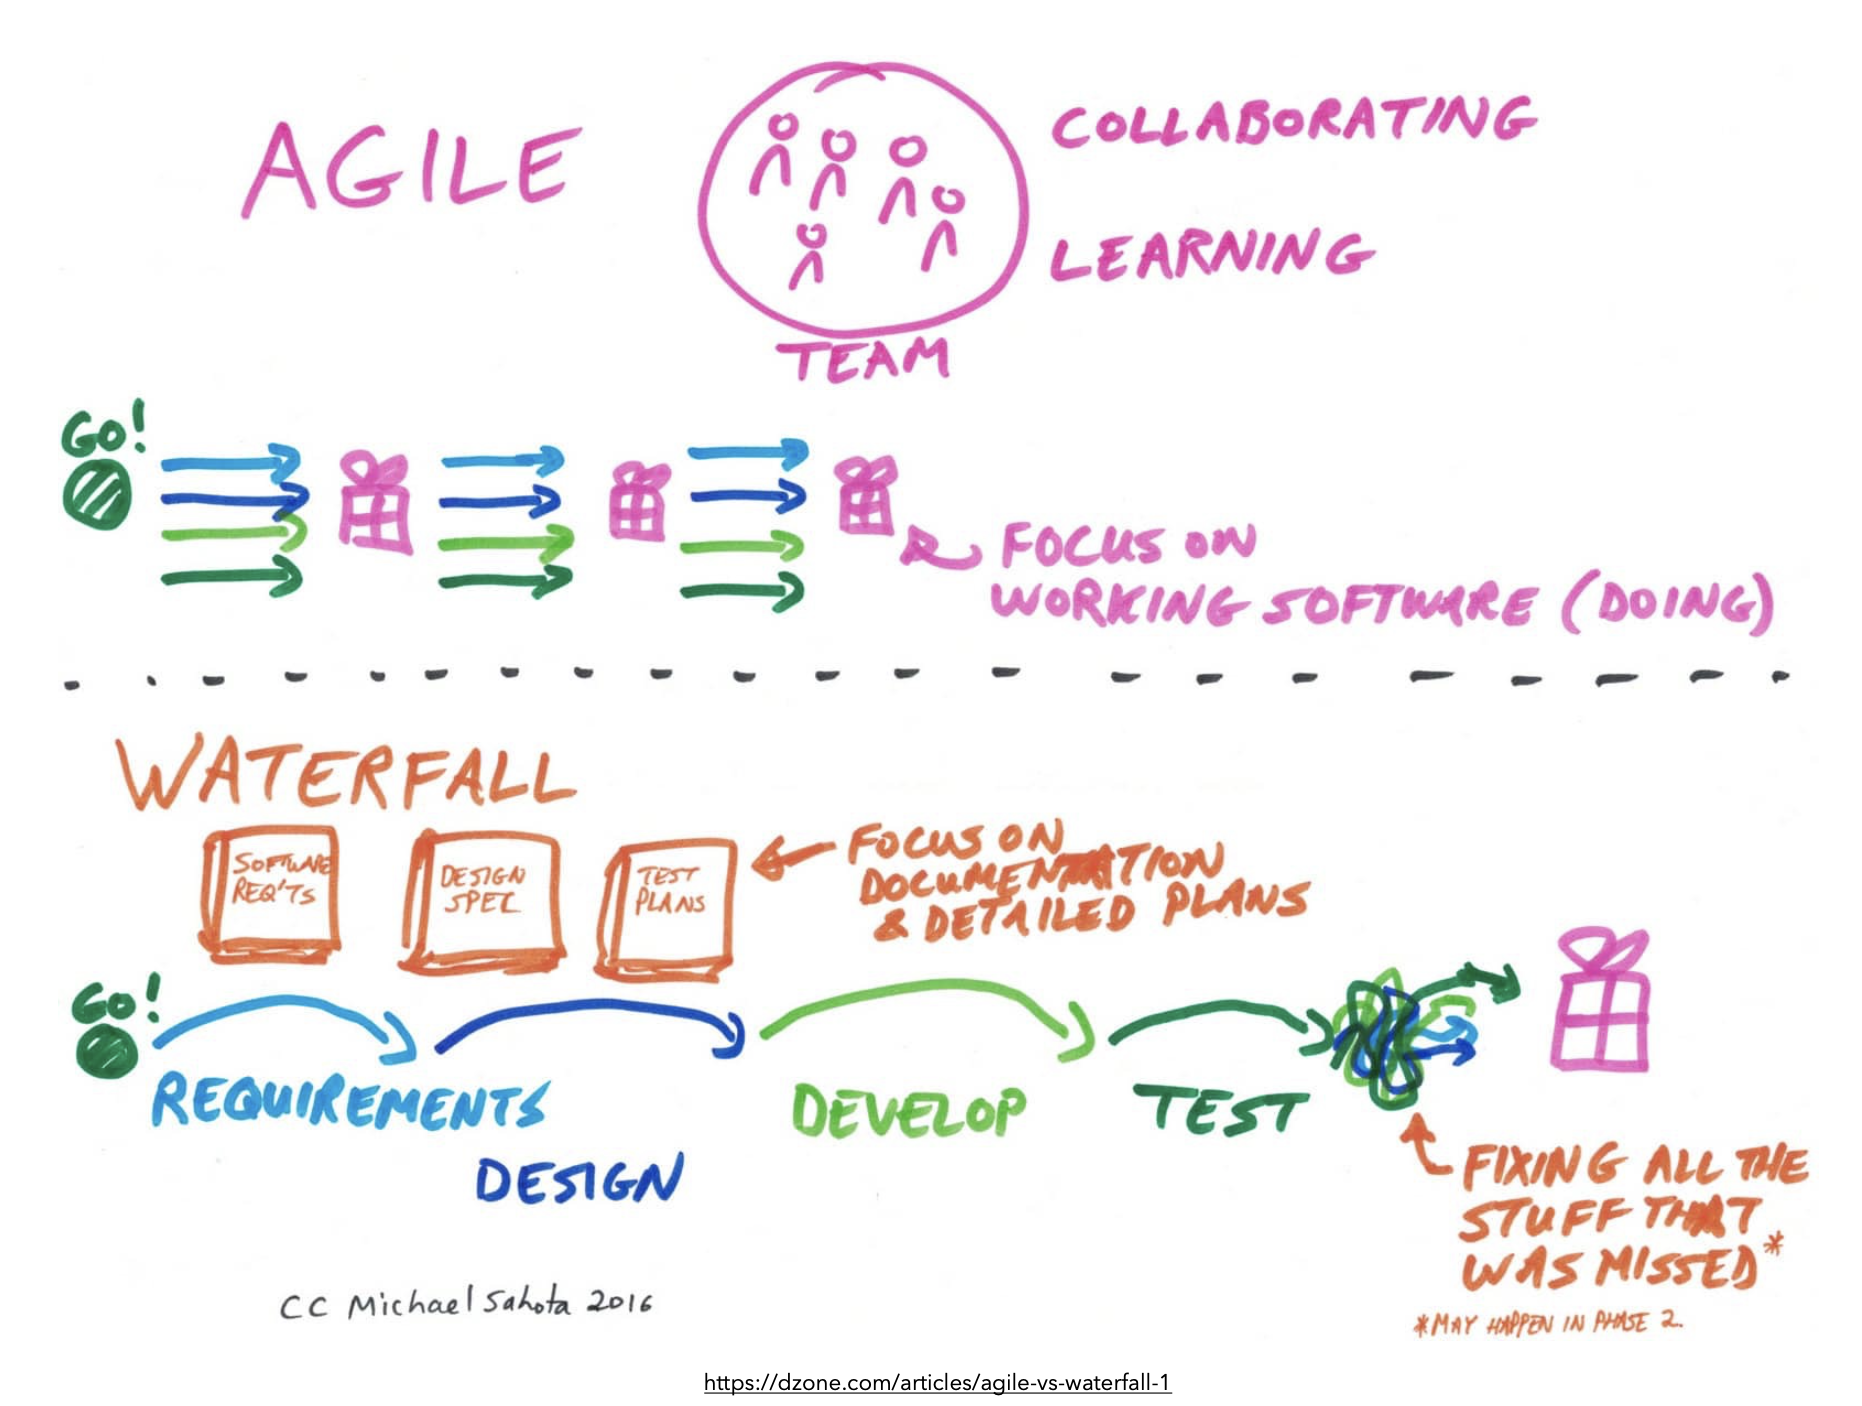 AGILE
COLLABORATING
LEARNING
TEAM
GO!
FOCUS ON
WORKING SOFTWARE (DOING)
WATERFALL
SOFTWARE
REQ'TS
DESIGN
SPEC
TEST
PLANS
FOCUS ON
DOCUMENTATION
& DETAILED PLANS
GO!
REQUIREMENTS
DESIGN
DEVELOP
TEST
FIXING ALL THE
STUFF THAT
WAS MISSED*
*MAY HAPPEN IN PHASE 2.
CC Michael Sahota 2016
https://dzone.com/articles/agile-vs-waterfall-1